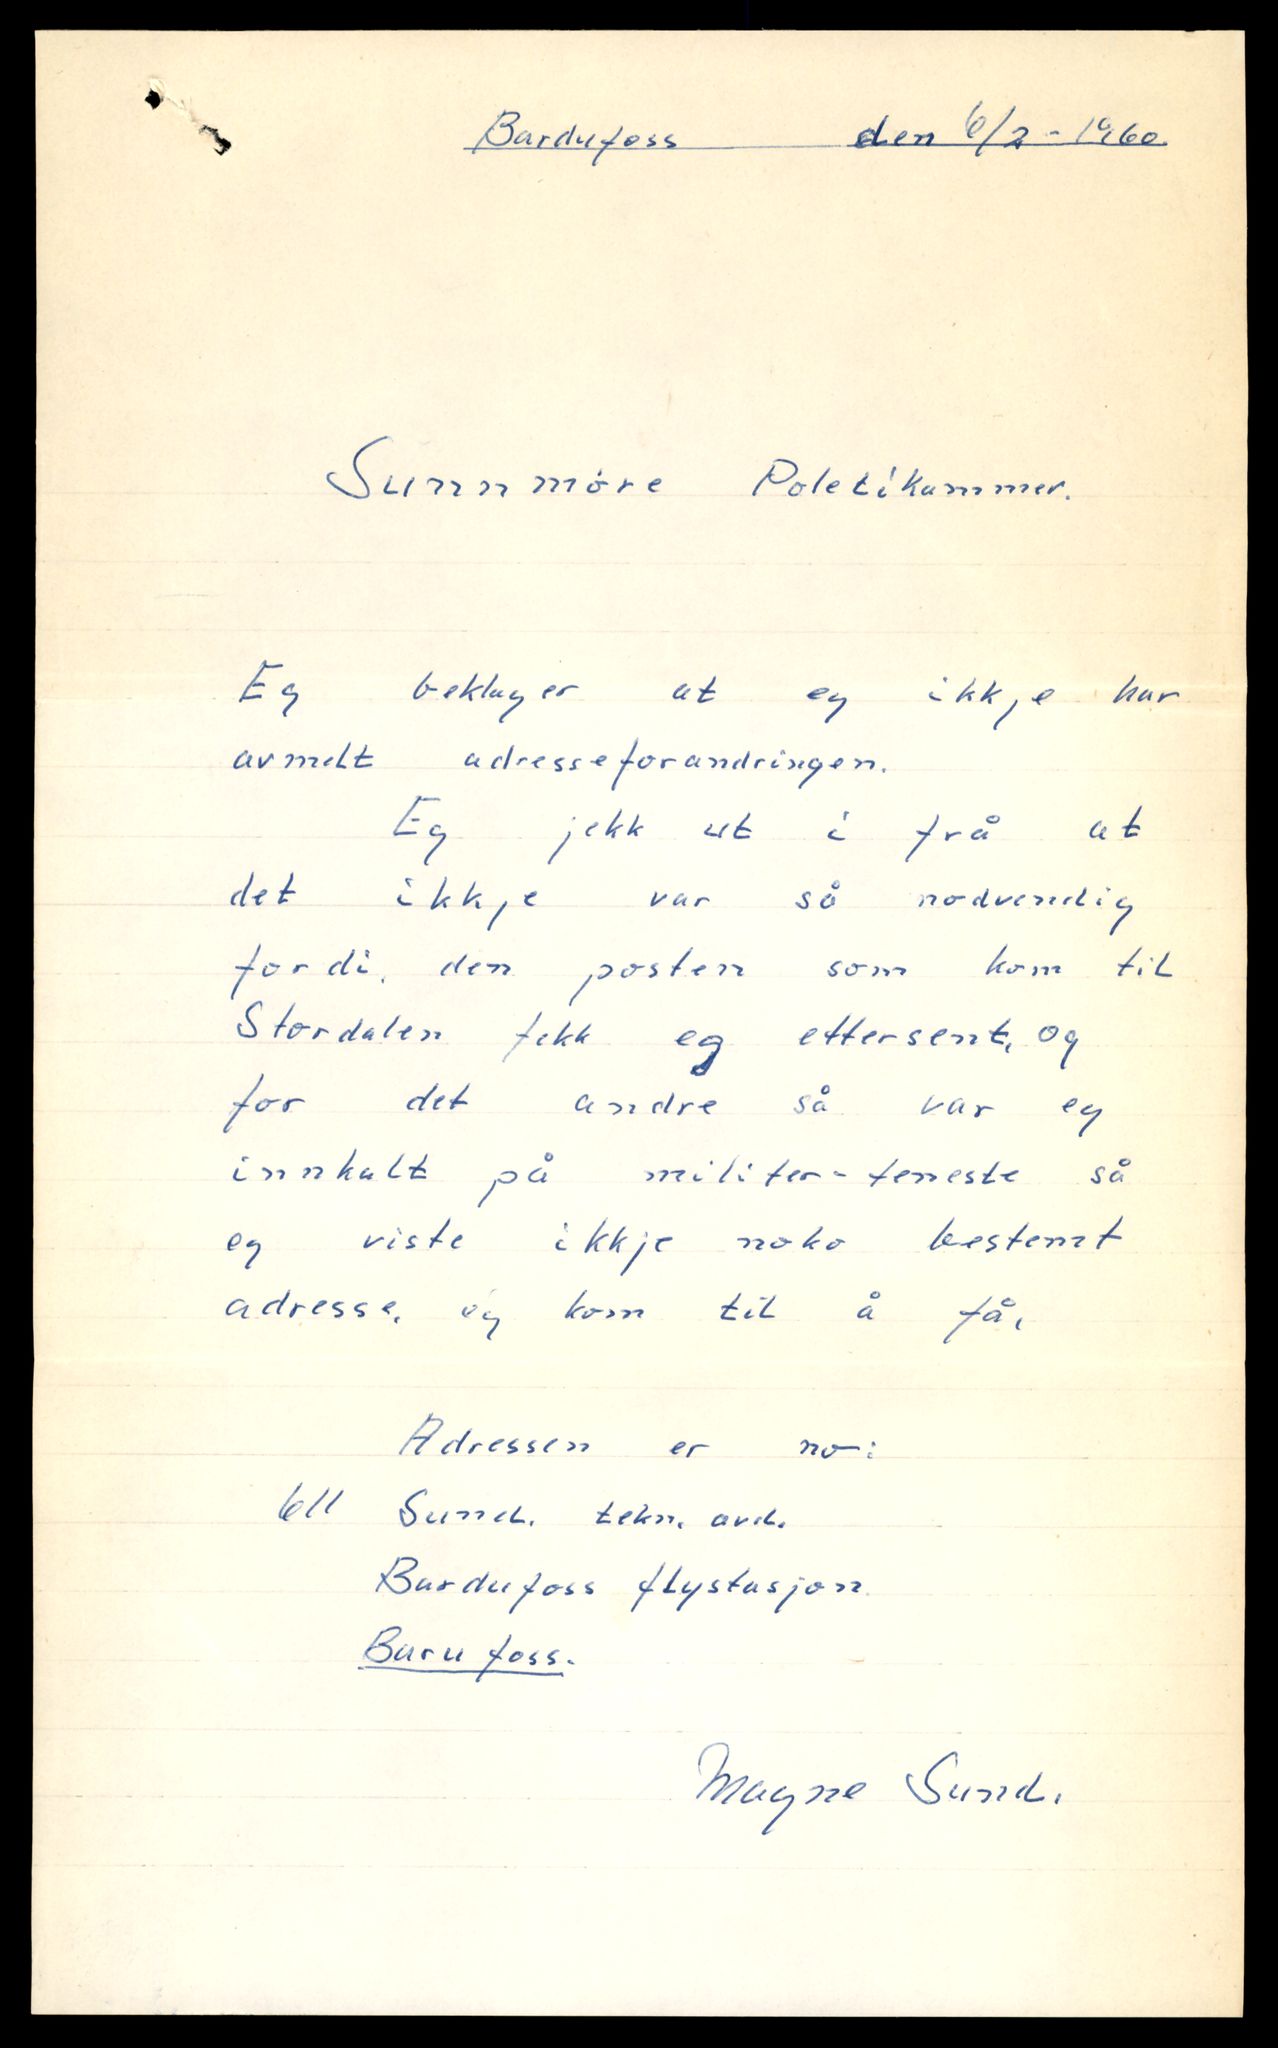 Bardufoss den 6/2 - 1960.
Sunnmöre Poletikammer.
Eg beklager at eg ikkje har
avmelt adresseforandringen.
Eg jekk ut i frå at
det ikkje var så nodvendig
fordi, den posten som kom til
Stordalen fekk eg ettersent, og
for det andre så var eg
innkalt på militer-teneste så
eg viste ikkje noko bestemt
adresse, eg kom til å få,
Adressen er no:
611 Sund. tekn. avd.
Bardufoss flystasjon.
Barufoss.
Magne Sund.